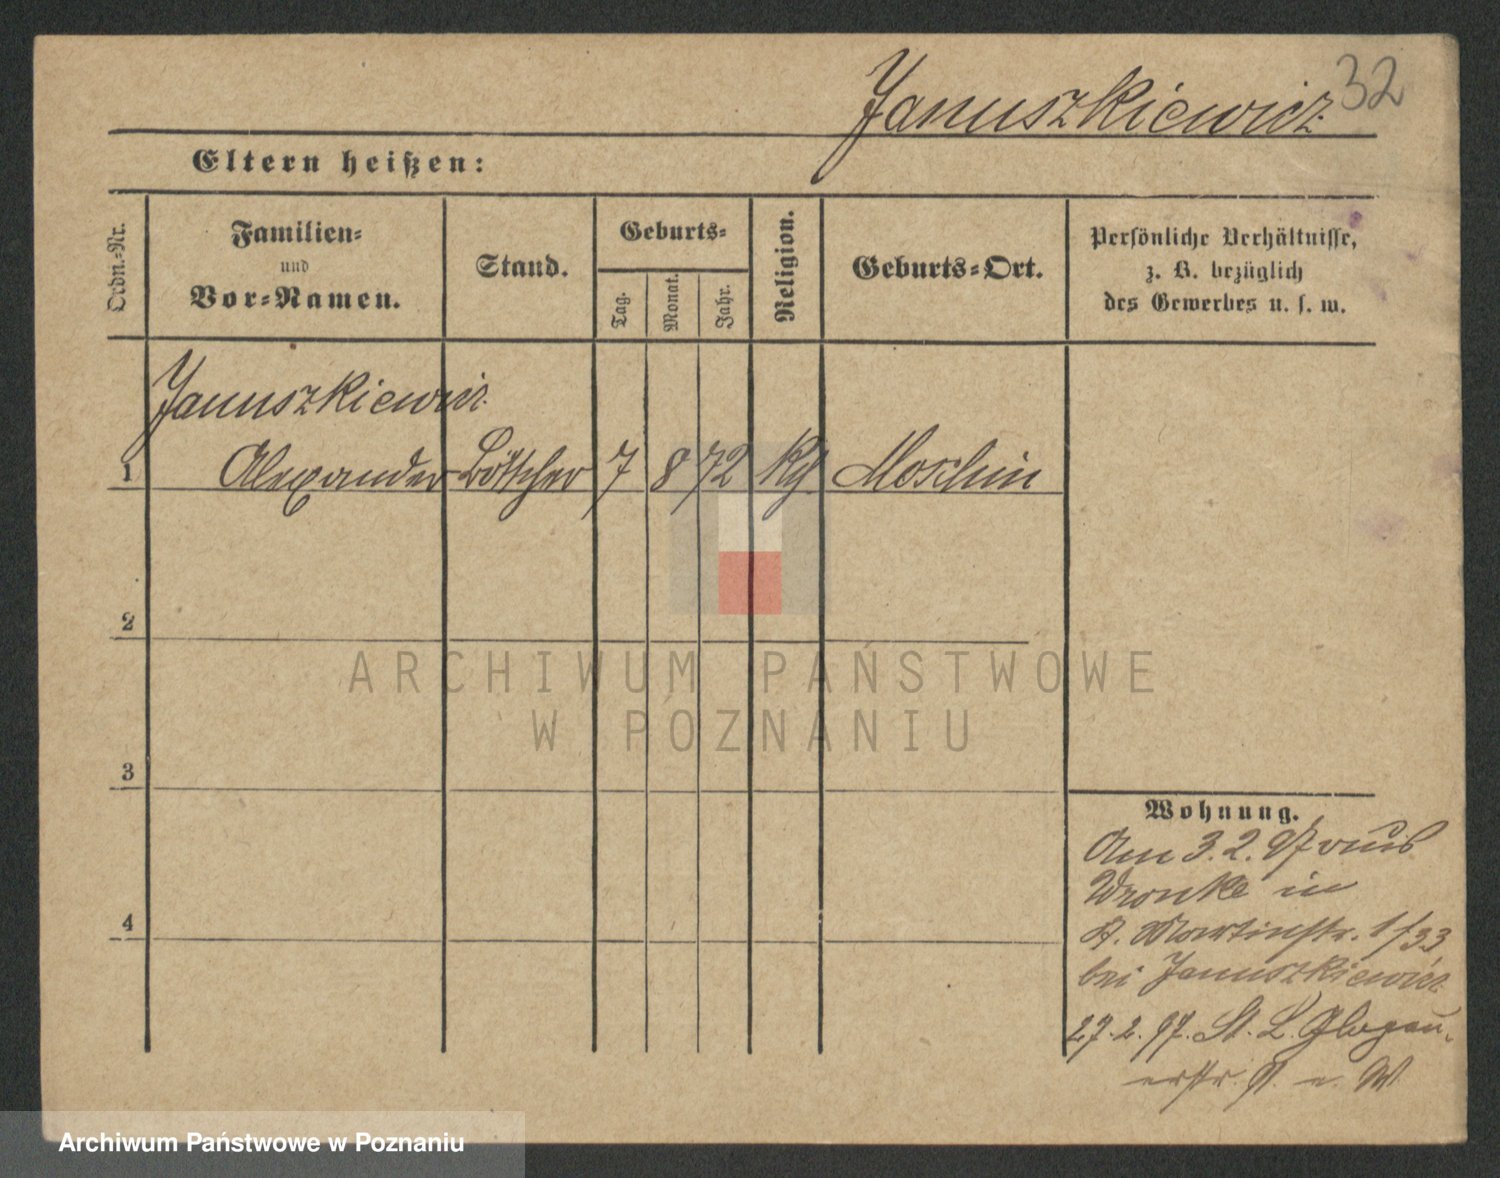 Januszkiewicz
32
Eltern heißen:
Ordn.-Nr.
Familien-
und
Vor-Namen.
Stand.
Geburts-
Tag.
Monat.
Jahr.
Religion.
Geburts-Ort.
Persönliche Verhältnisse,
z. B. bezüglich
des Gewerbes u. s. w.
Januszkiewicz
1 Alexander Böttcher 7 8 72 Kth Moschin
2
3
4
Wohnung.
Am 3.2.97 aus
Wronke in
St. Martinstr. 1/33
bei Januszkiewicz
27.2.97. St. L. Glogau-
erstr.
ARCHIWUM PAŃSTWOWE
W POZNANIU
Archiwum Państwowe w Poznaniu